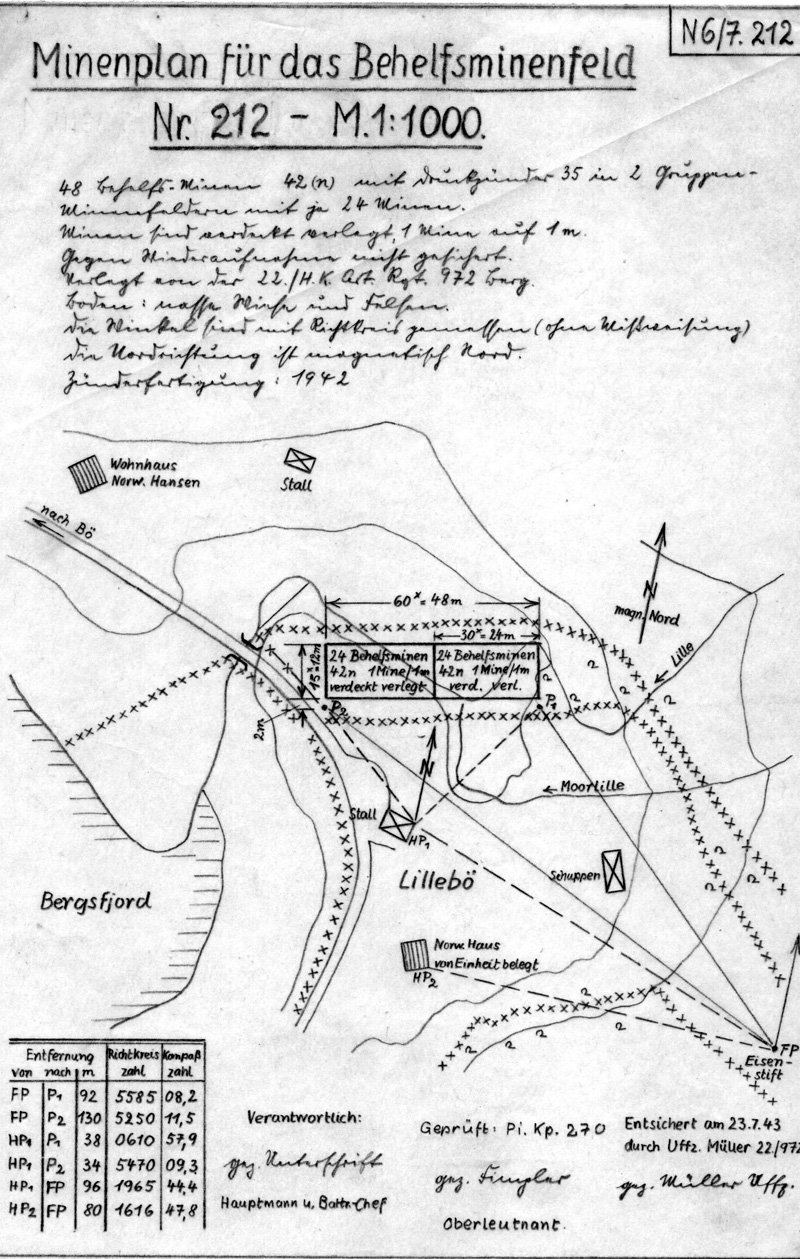 N6/7. 212
Minenplan für das Behelfsminenfeld
Nr. 212 – M. 1:1000.
48 Behelfs-Minen 42(n) mit Druckzünder 35 in 2 Gruppen-
Minenfeldern mit je 24 Minen.
Minen sind verdeckt verlegt, 1 Mine auf 1 m.
Gegen Wiederaufnahme nicht gesichert.
Verlegt von der 22./H.K. Art. Rgt. 972 Berg.
Boden: nasse Wiese und Felsen.
Die Winkel sind mit Richtkreis gemessen (ohne Mißweisung)
Die Nordrichtung ist magnetisch Nord.
Zünderfertigung: 1942
Wohnhaus
Norw. Hansen
Stall
nach Bö
60ˣ = 48 m
30ˣ = 24 m
15ˣ = 12 m
24 Behelfsminen
42n 1 Mine/1m
verdeckt verlegt
24 Behelfsminen
42n 1 Mine/1m
verd. verl.
N
magn. Nord
Lille
P2
P1
2m
N
Moorlille
Stall
HP1
Lillebö
Schuppen
Bergsfjord
Norw. Haus
von Einheit belegt
HP2
FP
Eisen-
stift
Entfernung Richtkreis Kompaß
von nach m zahl zahl
FP P1 92 5585 08,2
FP P2 130 5250 11,5
HP1 P1 38 0610 57,9
HP1 P2 34 5470 09,3
HP1 FP 96 1965 44,4
HP2 FP 80 1616 47,8
Verantwortlich:
gez. Unterschrift
Hauptmann u. Battr.-Chef
Geprüft: Pi. Kp. 270
gez.
Oberleutnant.
Entsichert am 23.7.43
durch Uffz. Müller 22/972
gez. Müller Uffz.